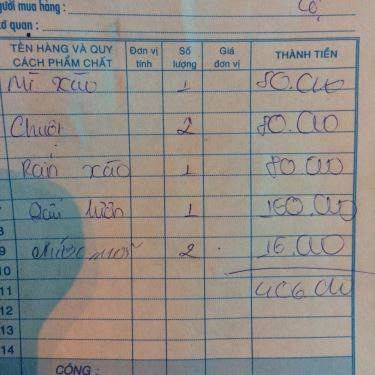 gười mua hàng :
ơ quan :
TÊN HÀNG VÀ QUY CÁCH PHẨM CHẤT Đơn vị tính Số lượng Giá đơn vị THÀNH TIỀN
Mì xào 1 80.000
Chuối 2 80.000
Rau xào 1 80.000
1 150.000
8
9 nước suối 2 16.000
10
11 406.000
12
13
14
CỘNG :